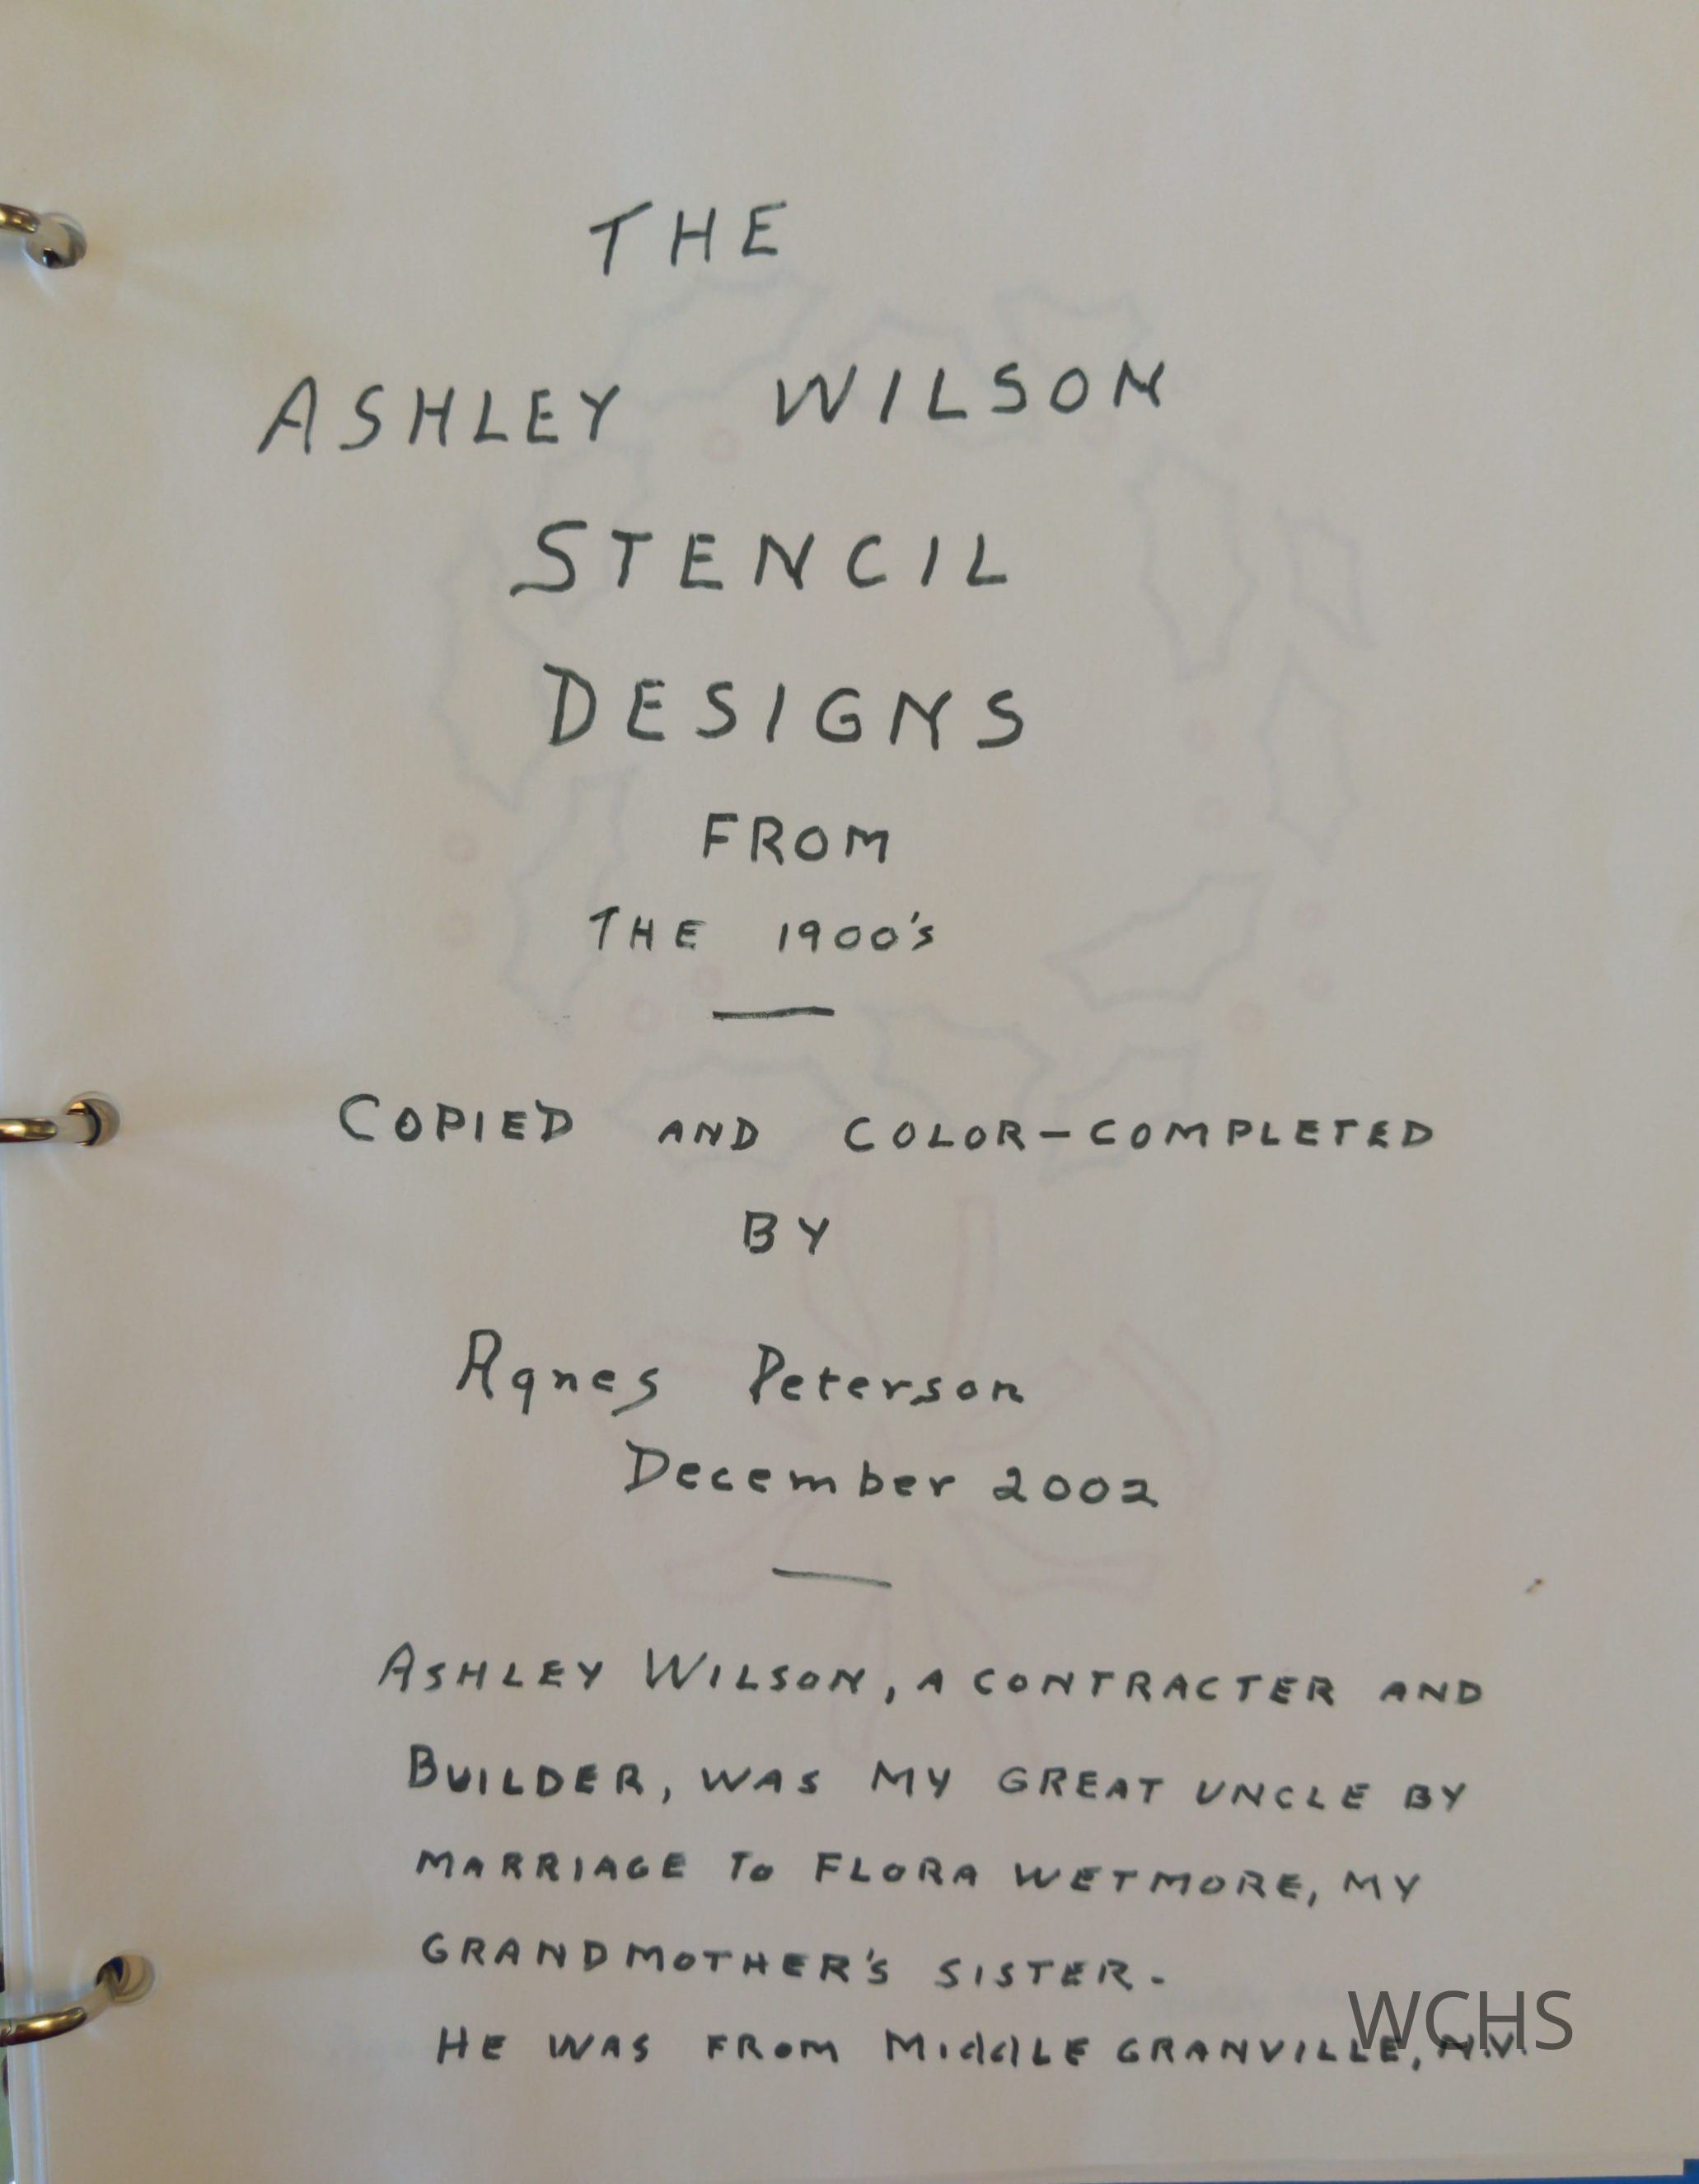 THE
ASHLEY WILSON
STENCIL
DESIGNS
FROM
THE 1900's
COPIED AND COLOR-COMPLETED
BY
Agnes Peterson
December 2002
ASHLEY WILSON, A CONTRACTER AND
BUILDER, WAS MY GREAT UNCLE BY
MARRIAGE TO FLORA WETMORE, MY
GRANDMOTHER'S SISTER.
HE WAS FROM MIddLE GRANVILLE, N.Y.
WCHS